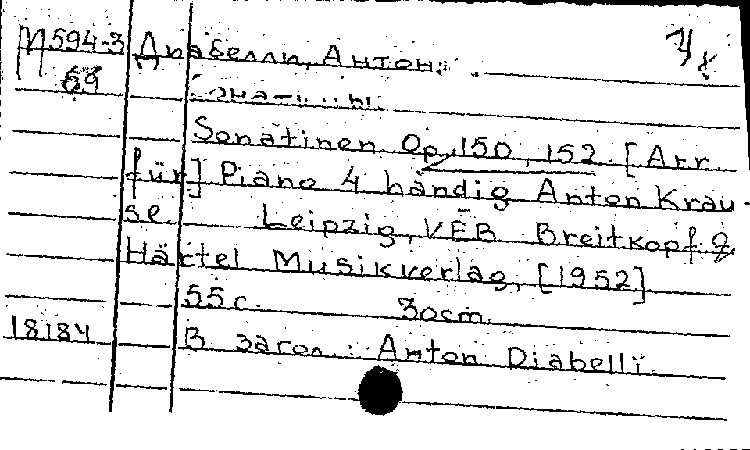 П594-3 Диабелли, Антон.
69
Сонатины.
Sonatinen Op. 150, 152. [Arr.
für] Piano 4 händig Anton Krau-
se. Leipzig, VEB Breitkopf &
Härtel Musikverlag, [1952]
55 с. 30 cm.
18184 В загол.: Anton Diabelli.